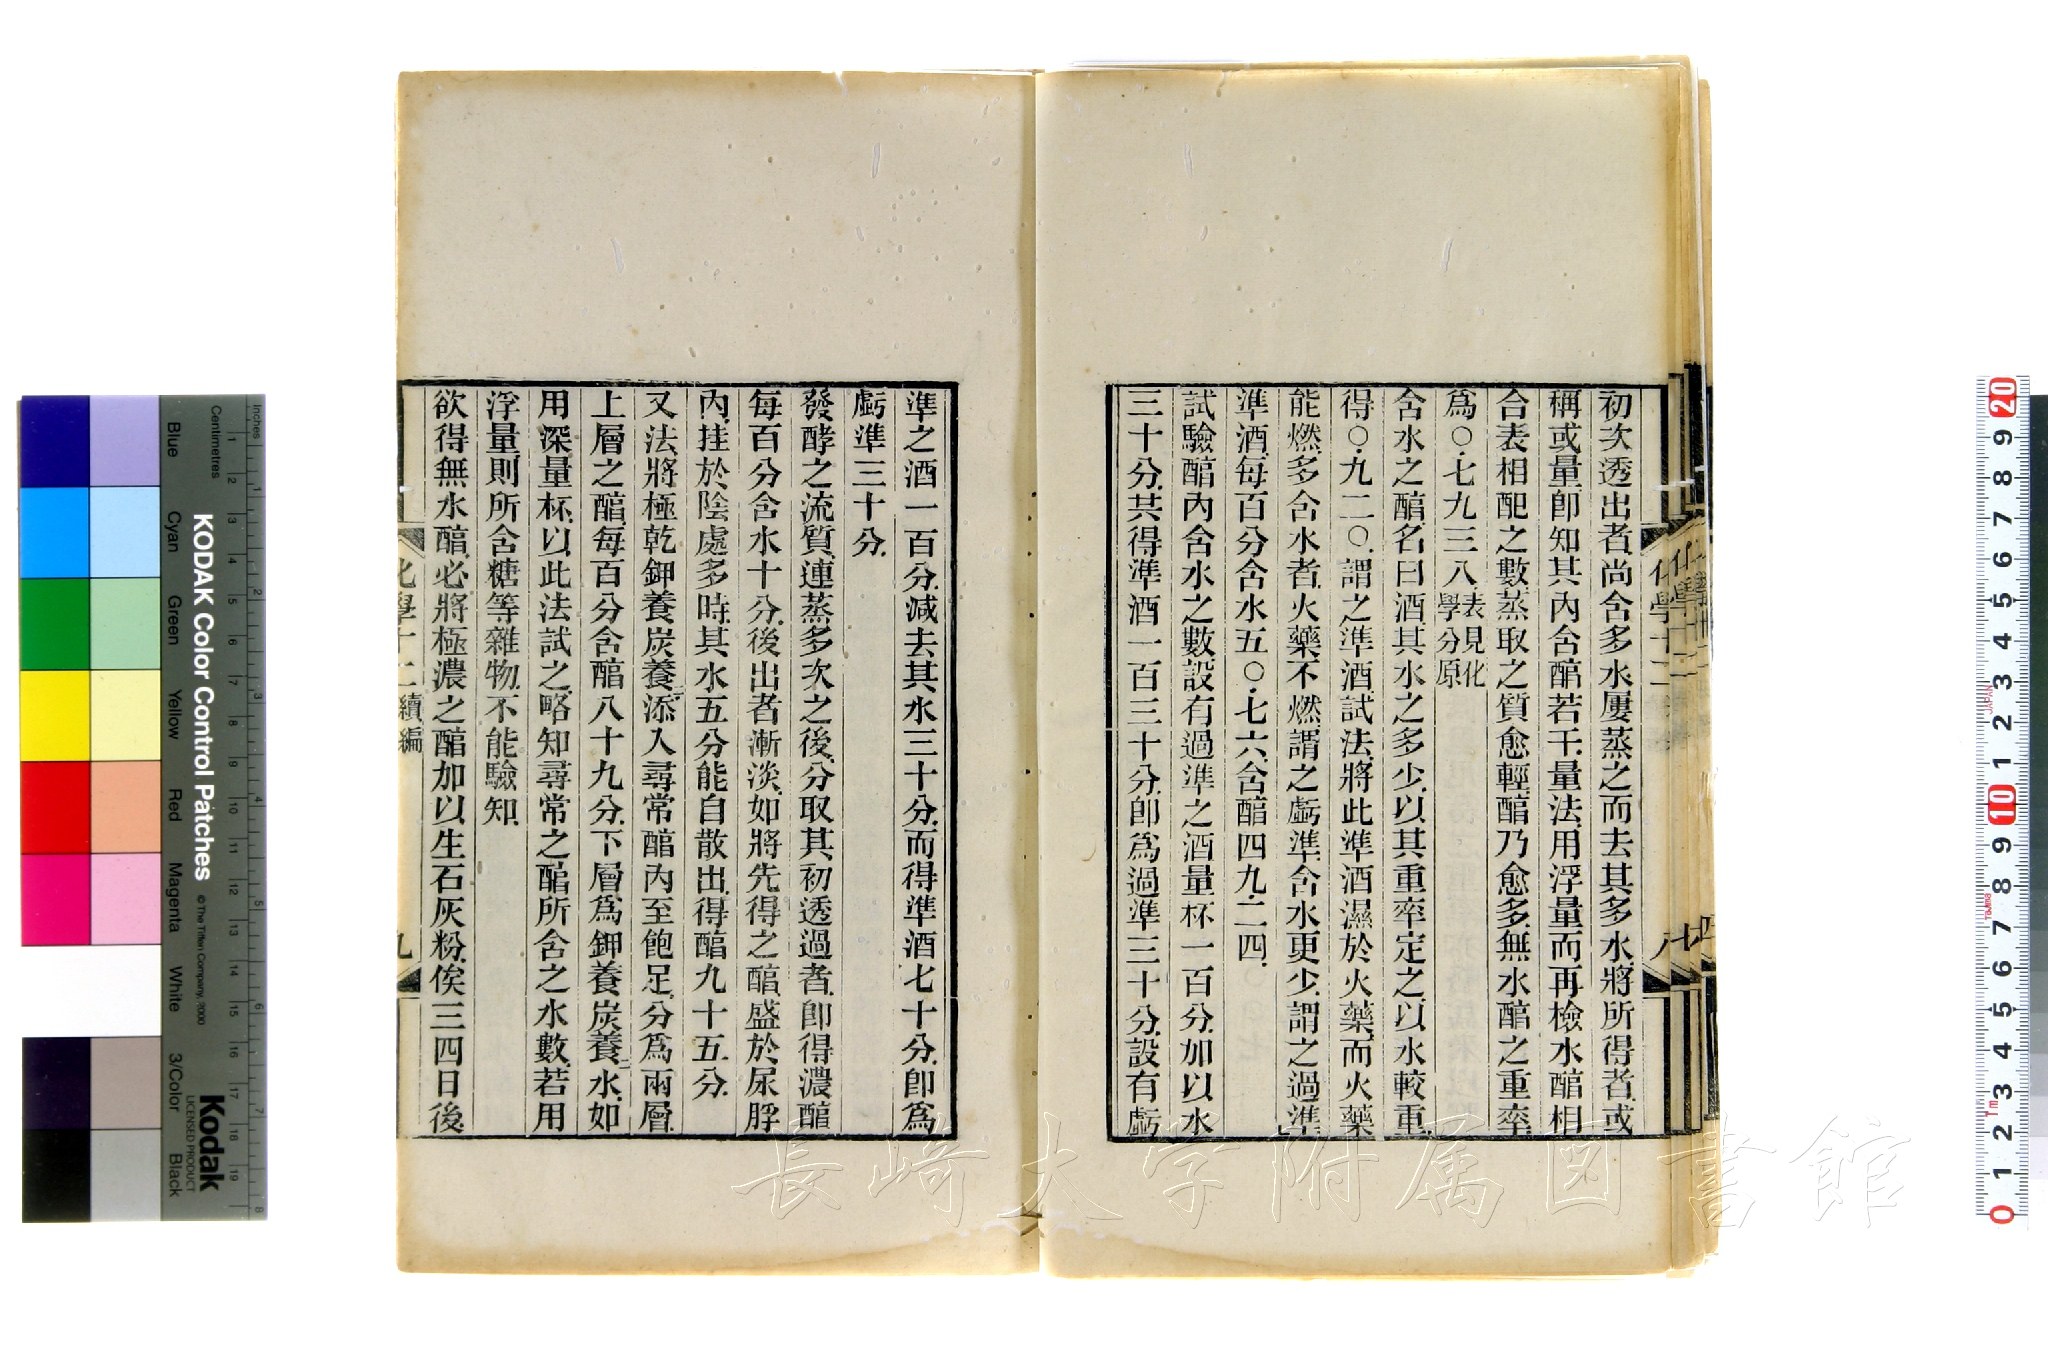 初次透出者尚含多水屢蒸之而去其多水將所得者或
稱或量卽知其內含醕若干量法用浮量而再檢水醕相
合表相配之數蒸取之質愈輕醕乃愈多無水醕之重率
爲○七九三八表見化學分原
含水之醕名曰酒其水之多少以其重率定之以水較重
得○九二○謂之準酒試法將此準酒濕於火藥而火藥
能燃多含水者火藥不燃謂之虧準含水更少謂之過準
準酒每百分含水五○七六含醕四九二四
試驗醕內含水之數設有過準之酒量杯一百分加以水
三十分其得準酒一百三十分卽爲過準三十分設有虧
準之酒一百分減去其水三十分而得準酒七十分卽爲
虧準三十分
發酵之流質連蒸多次之後分取其初透過者卽得濃醕
每百分含水十分後出者漸淡如將先得之醕盛於尿脬
內挂於陰處多時其水五分能自散出得醕九十五分
又法將極乾鉀養炭養二添入尋常醕內至飽足分爲兩層
上層之醕每百分含醕八十九分下層爲鉀養炭養二水如
用深量杯以此法試之略知尋常之醕所含之水數若用
浮量則所含糖等雜物不能驗知
欲得無水醕必將極濃之醕加以生石灰粉俟三四日後
化學十二續編
九
化學十二
八
七
Inches
Centimetres
KODAK Color Control Patches
© The Tiffen Company, 2000
Kodak
LICENSED PRODUCT
Blue
Cyan
Green
Yellow
Red
Magenta
White
3/Color
Black
長崎大学附属図書館